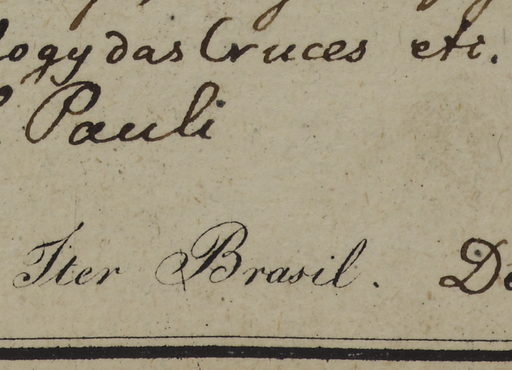 logy das Cruces etc.
Pauli
Iter Brasil. De